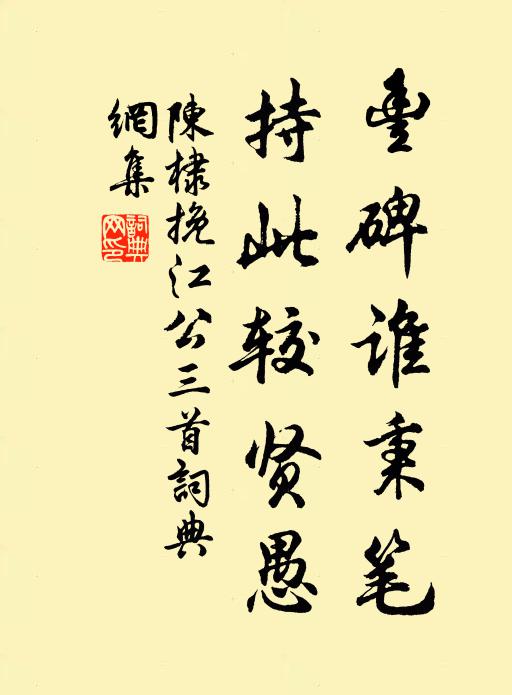 豊碑谁秉笔
持此较贤愚
陳棣挽江公三首詞典
網集
詞典網印